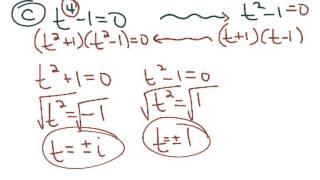 C t⁴-1=0 → t²-1=0
(t²+1)(t²-1)=0 ← (t+1)(t-1)
t²+1=0 t²-1=0
√t²=√-1 √t²=√1
t=±i t=±1